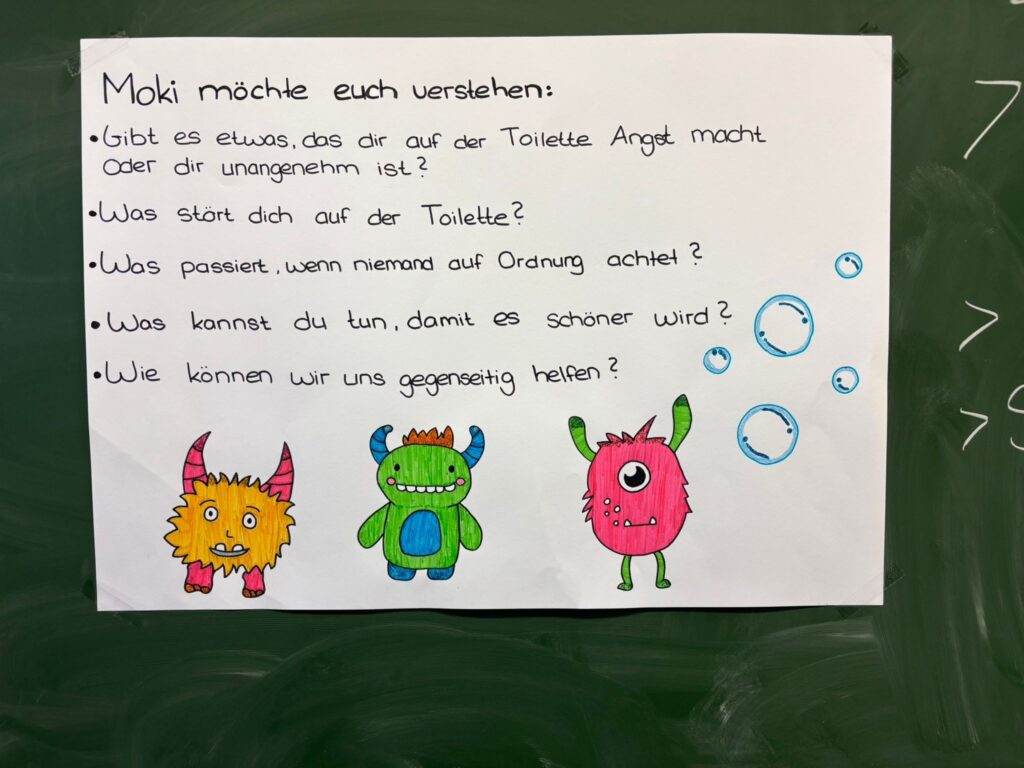 Moki möchte euch verstehen:
• Gibt es etwas, das dir auf der Toilette Angst macht
Oder dir unangenehm ist?
• Was stört dich auf der Toilette?
• Was passiert, wenn niemand auf Ordnung achtet?
• Was kannst du tun, damit es schöner wird?
• Wie können wir uns gegenseitig helfen?
>
>